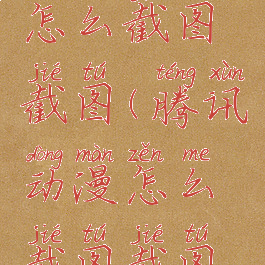 怎么截图
jié tú téng xùn
截图(腾讯
dòng màn zěn me
动漫怎么
jié tú jié tú
截图截图